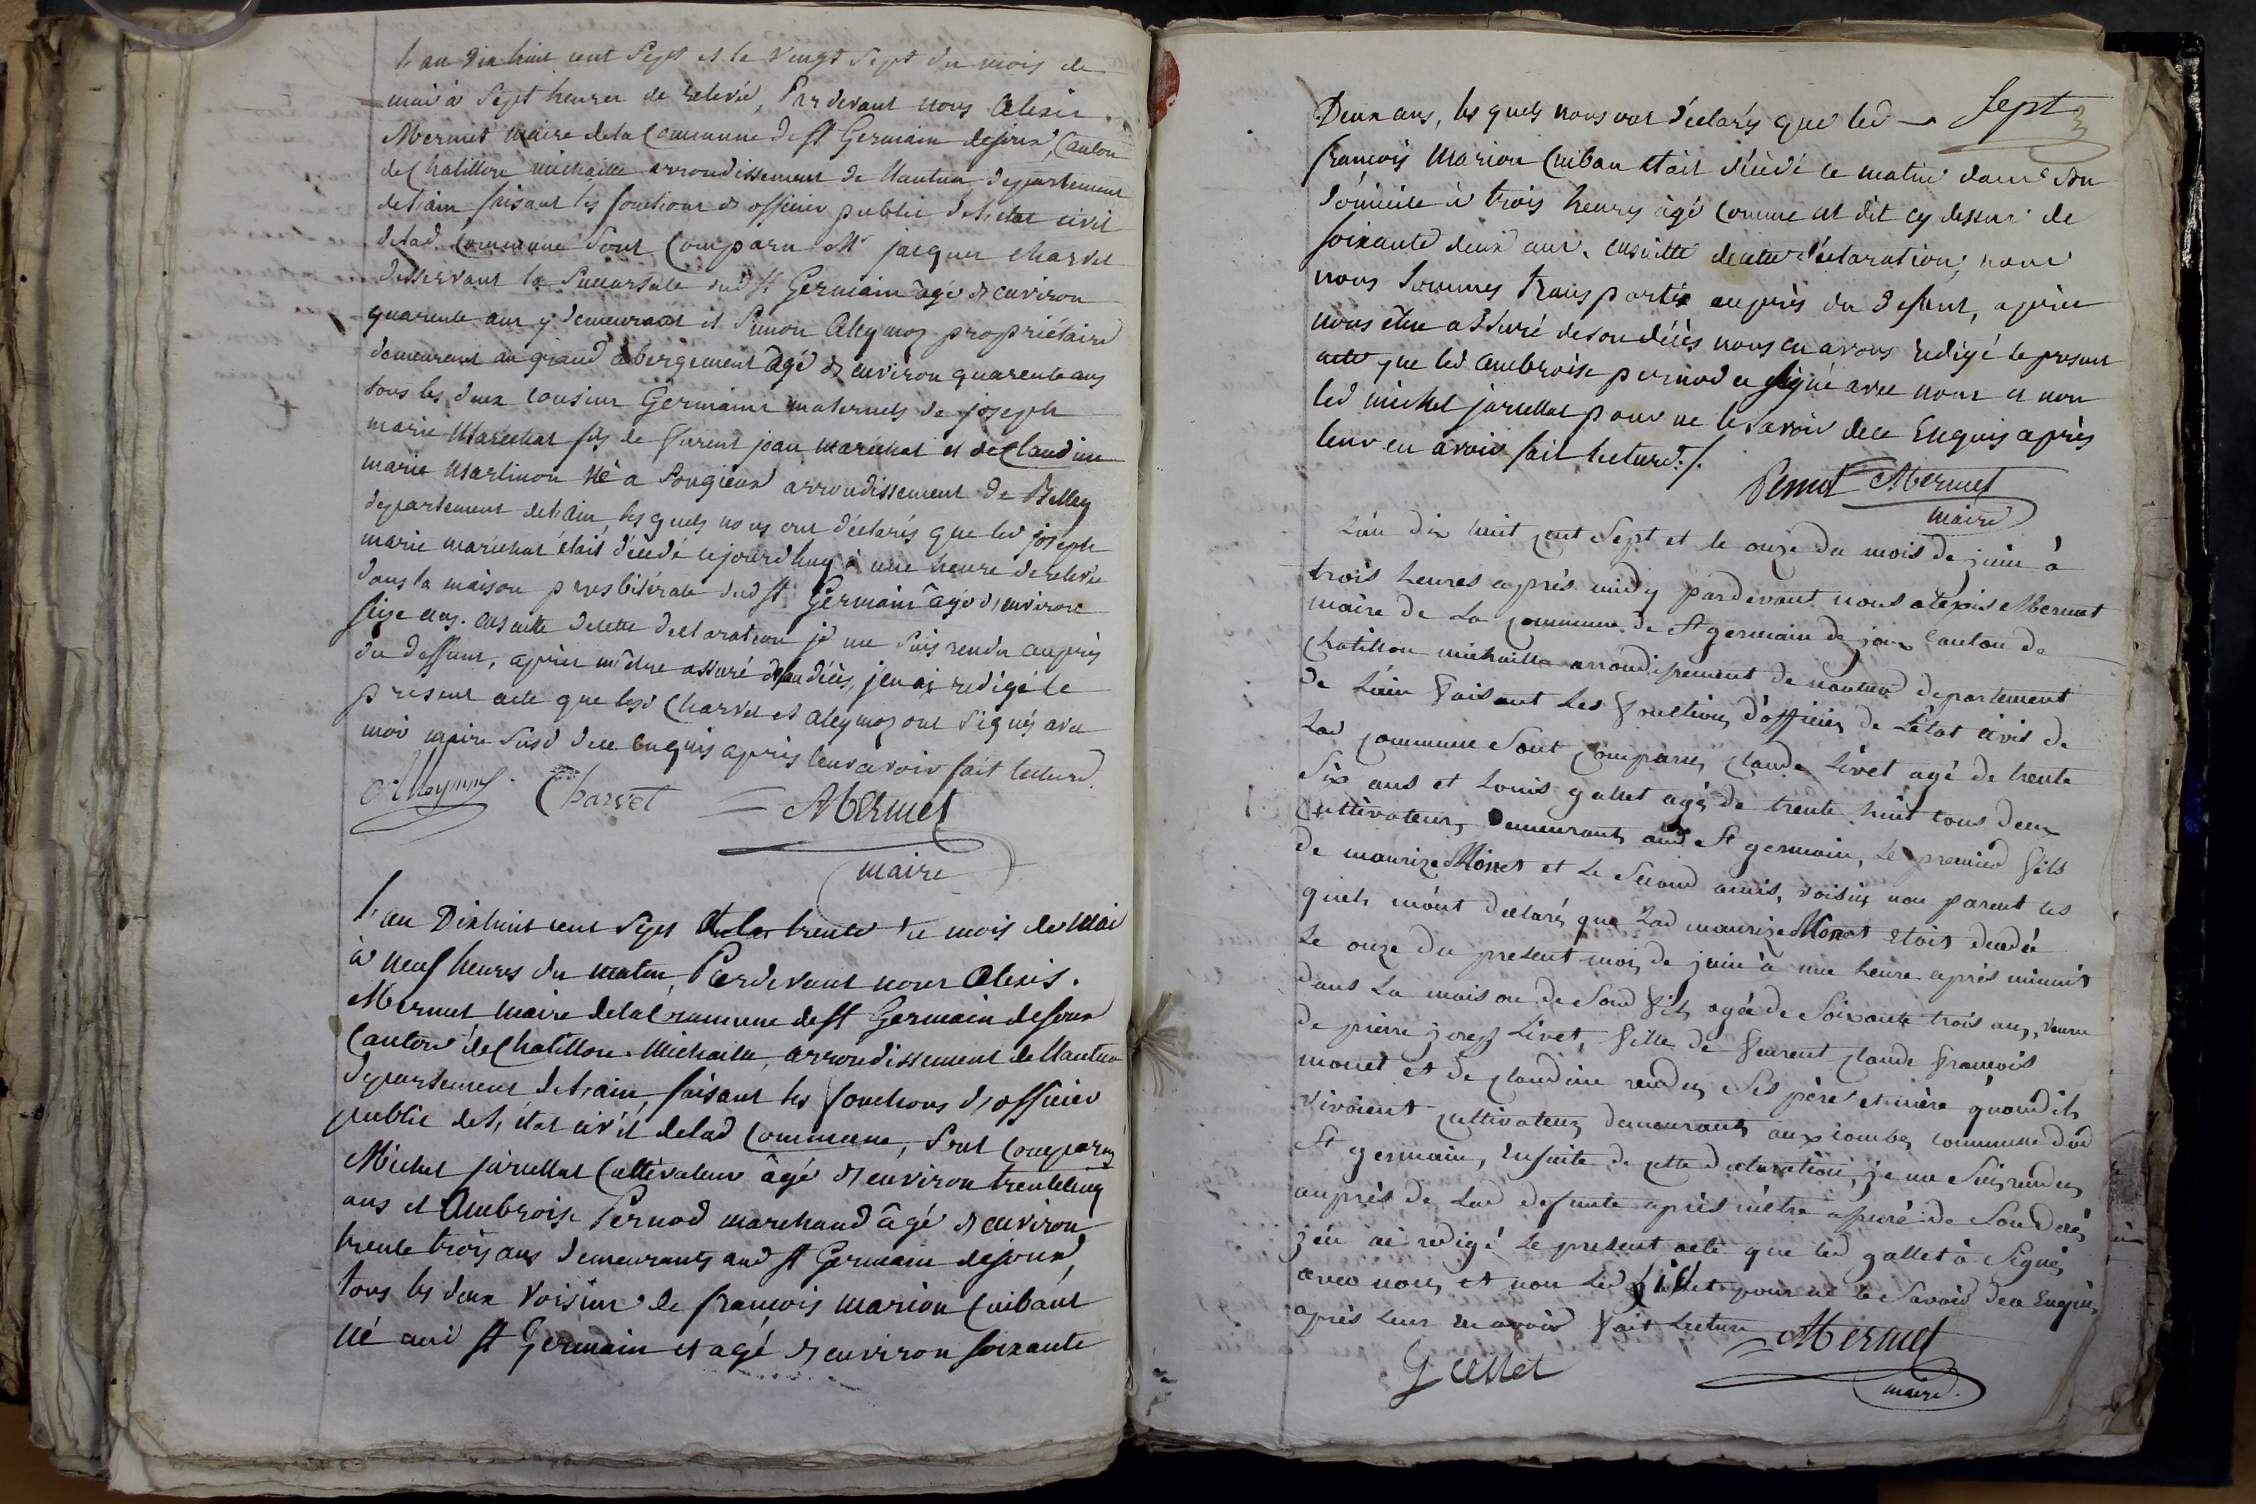 L'an dix huit cent Sept et le vingt Sept du mois de
mai à Sept heures de relevée, Pardevant nous Alexis
Mermet maire de la Commune de St Germain dejoux, Canton
de Chatillon michaille arrondissement de Nantua departement
de L'ain faisant les fonctions d'officier public de L'etat civil
de lad. Commune Sont Comparu Mr jacques charvet
desservant la Succursale dud St Germain âgé d'environ
quarente ans y demeurant et Simon Alleymoz propriétaire
demeurant au grand abergement âgé d'environ quarente ans
tous les deux cousins Germains maternels de joseph
marie Marechal fils de feurent jean marechal et de Claudine
marie Martinon né a Songieux arrondissement de Belley
departement de L'ain, les quels nous ont déclarés que led joseph
marie marechal était décédé cejourd'huy à une heure de relevée
dans la maison presbitérale dud St Germain âgé d'environ
seize ans. ensuitte de cette declaration je me suis rendu auprès
du deffunt, après m'être assuré de son décès, j'en ai redigé le
présent acte que lesd Charvet et alleymoz ont signés avec
moi maire susd de ce enquis après leur avoir fait lecture
Alleymoz Charvet Mermet
maire
L'an Dixhuit cent Sept et le trente du mois de Mai
à neuf heures du matin, Pardevant nous Alexis
Mermet maire de la Commune de St Germain dejoux
Canton de Chatillon Michaille, arrondissement de Nantua
departement de L'ain, faisant les fonctions d'officier
public de L'état civil de lad Commune, Sont Comparus
Michel jarullat Cultivateur âgé d'environ trente cinq
ans et Ambroise Pernod marchand âgé d'environ
trente trois ans demeurants aud St Germain dejoux,
tous les deux Voisins de françois marion Cuibant
né aud St Germain et agé d'environ soixante
Sept
Deux ans, les quels nous ont déclarés que led
françois Marion Cuiban était décédé ce matin dans son
domicile à trois heures âgé Comme est dit cy dessus de
soixante deux ans. ensuitte de cette déclaration, nous
nous sommes transporté auprès du defunt, après
nous être assuré de son décès nous en avons redigé le présent
acte que led ambroise pernod a signé avec nous et non
led michel jarullat pour ne le savoir de ce Enquis après
leur en avoir fait lecture./.
Pernot Mermet
maire
L'an dix huit cent Sept et le onze du mois de juin à
trois heures après midy pardevant nous alexis Mermet
maire de la commune de St germain de joux Canton de
Chatillon michaille arrondissement de nantua departement
de L'ain faisant Les fonctions d'officier de L'état civil de
Lad commune Sont comparus claude Livet agé de trente
Six ans et Louis gallet agé de trente huit tous deux
Cultivateurs, Demeurants aud St germain, Le premier fils
de maurize Monet et Le Second amis, voisin non parent les
quels m'ont declarés que Lad maurize Monet etoit decedée
Le onze du present mois de juin à une heure après minuit
dans La maison de Soud fils agée de Soixante trois ans, veuve
de pierre joseph Livet, fille de feurent claude françois
monet et de claudine rendu Ses père et mère quand ils
vivoient cultivateurs demeurants aux combes commune dud
St germain, Ensuite de cette declaration, je me Suis rendu
auprès de Lad defunte après m'être assuré de Son decés
j'en ai redigé Le present acte que led gallet à Signés
avec nous et non Led pour ne le Savoir de ce Enquis
après Leur en avoir fait Lecture Mermet
Gallet
maire